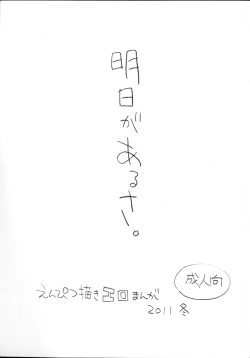 明日があるさ。
成人向
えんぴつ描き
まんが
2011 冬